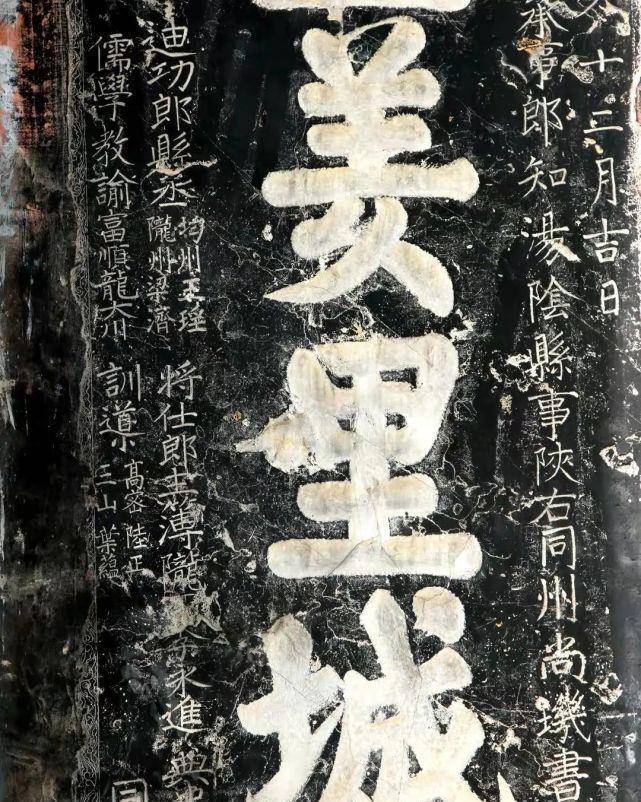 十三月吉日
承事郎知湯陰縣事陝右同州尚璣書
羑里城
迪功郎縣丞
均州王瑾
隴州梁濟
將仕郎主簿隴
永進
典
儒學教諭富順龍
訓導
高密陸正
三山葉蘊
同